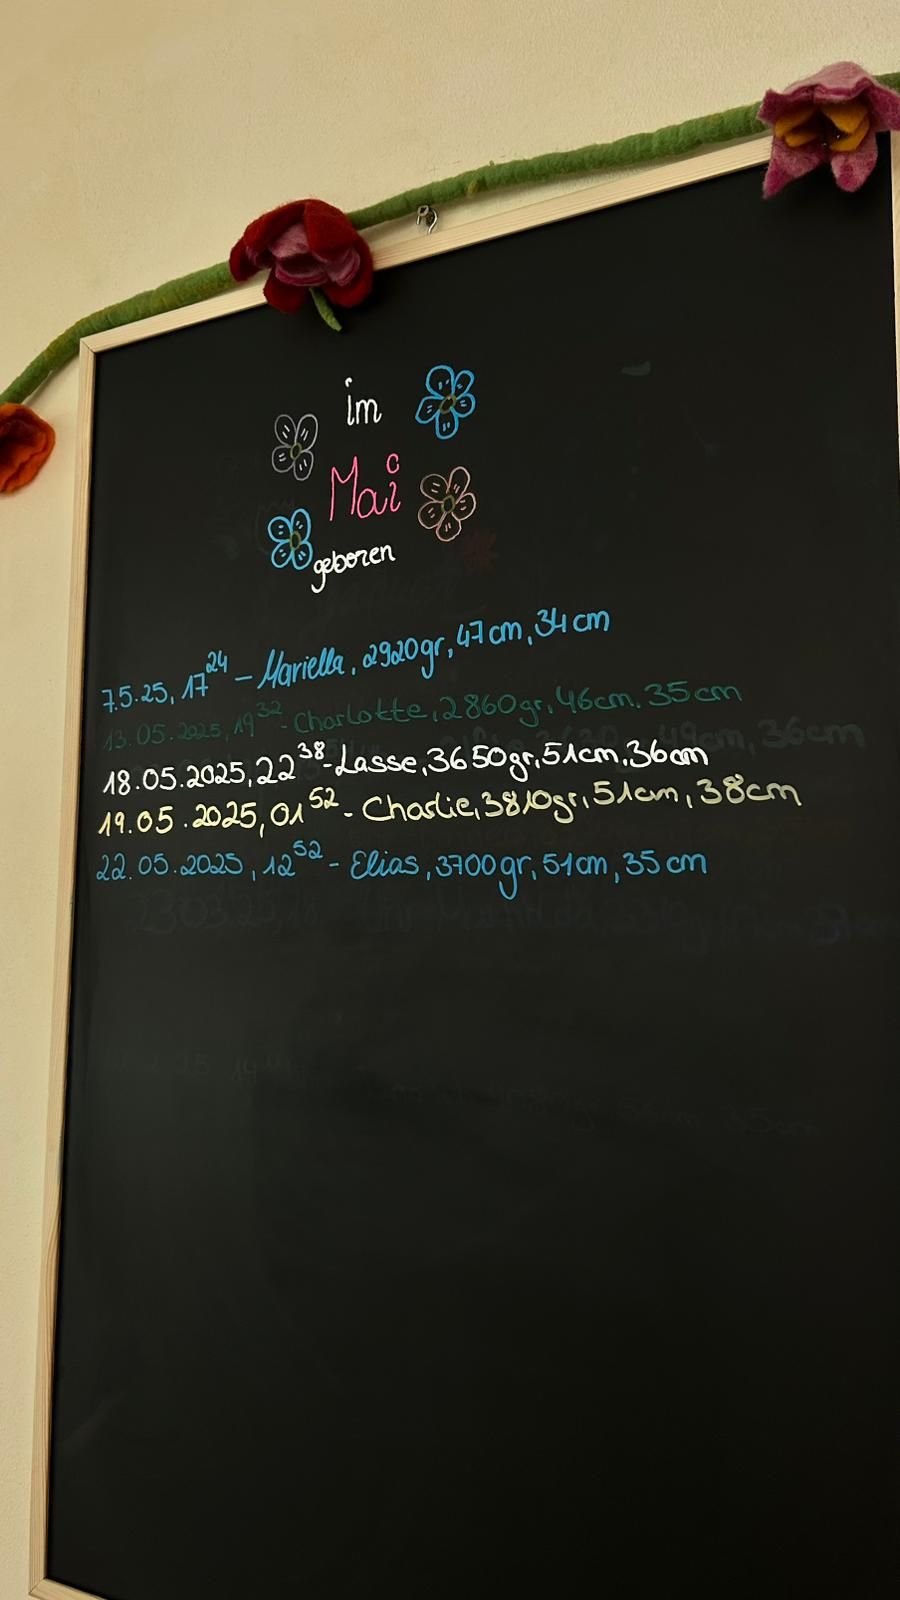 im
Mai
geboren
7.5.25, 17²⁴ - Mariella, 2920gr, 47cm, 34cm
13.05.2025, 19³² - Charlotte, 2860gr, 46cm, 35cm
18.05.2025, 22³⁸ - Lasse, 3650gr, 51cm, 36cm
19.05.2025, 01⁵² - Charlie, 3810gr, 51cm, 38cm
22.05.2025, 12⁵² - Elias, 3700gr, 51cm, 35cm